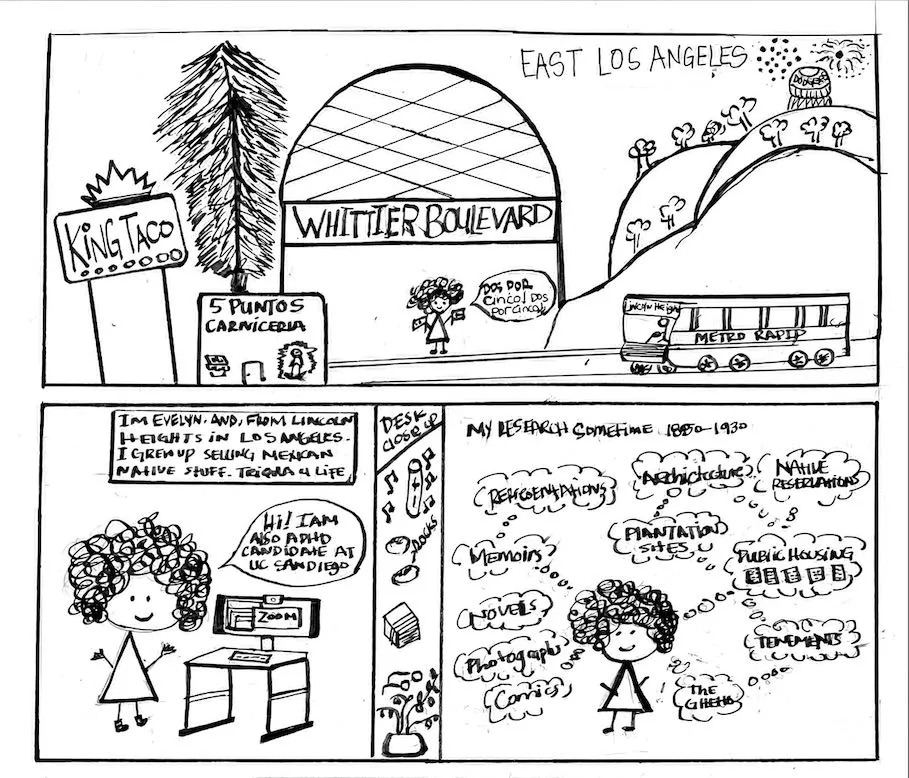 EAST LOS ANGELES
DODGERS
KING TACO
WHITTIER BOULEVARD
5 PUNTOS
CARNICERIA
DOS POR
CINCO! DOS
POR CINCO!
LINCOLN HEIGHTS
METRO RAPID
IM EVELYN. AND, FROM LINCOLN
HEIGHTS IN LOS ANGELES.
I GREW UP SELLING MEXICAN
NATIVE STUFF. TRIQUA 4 LIFE
Hi! I AM
ALSO A PHD
CANDIDATE AT
UC SAN DIEGO
ZOOM
DESK
Close up
ROCKS
MY RESEARCH Sometime 1880-1930
REPRESENTATIONS
Architecture
NATIVE
RESERVATIONS
PLANTATION
SITES
Memoirs
PUBLIC HOUSING
NOVELS
TENEMENTS
Photographs
Comics
THE
GHETTO